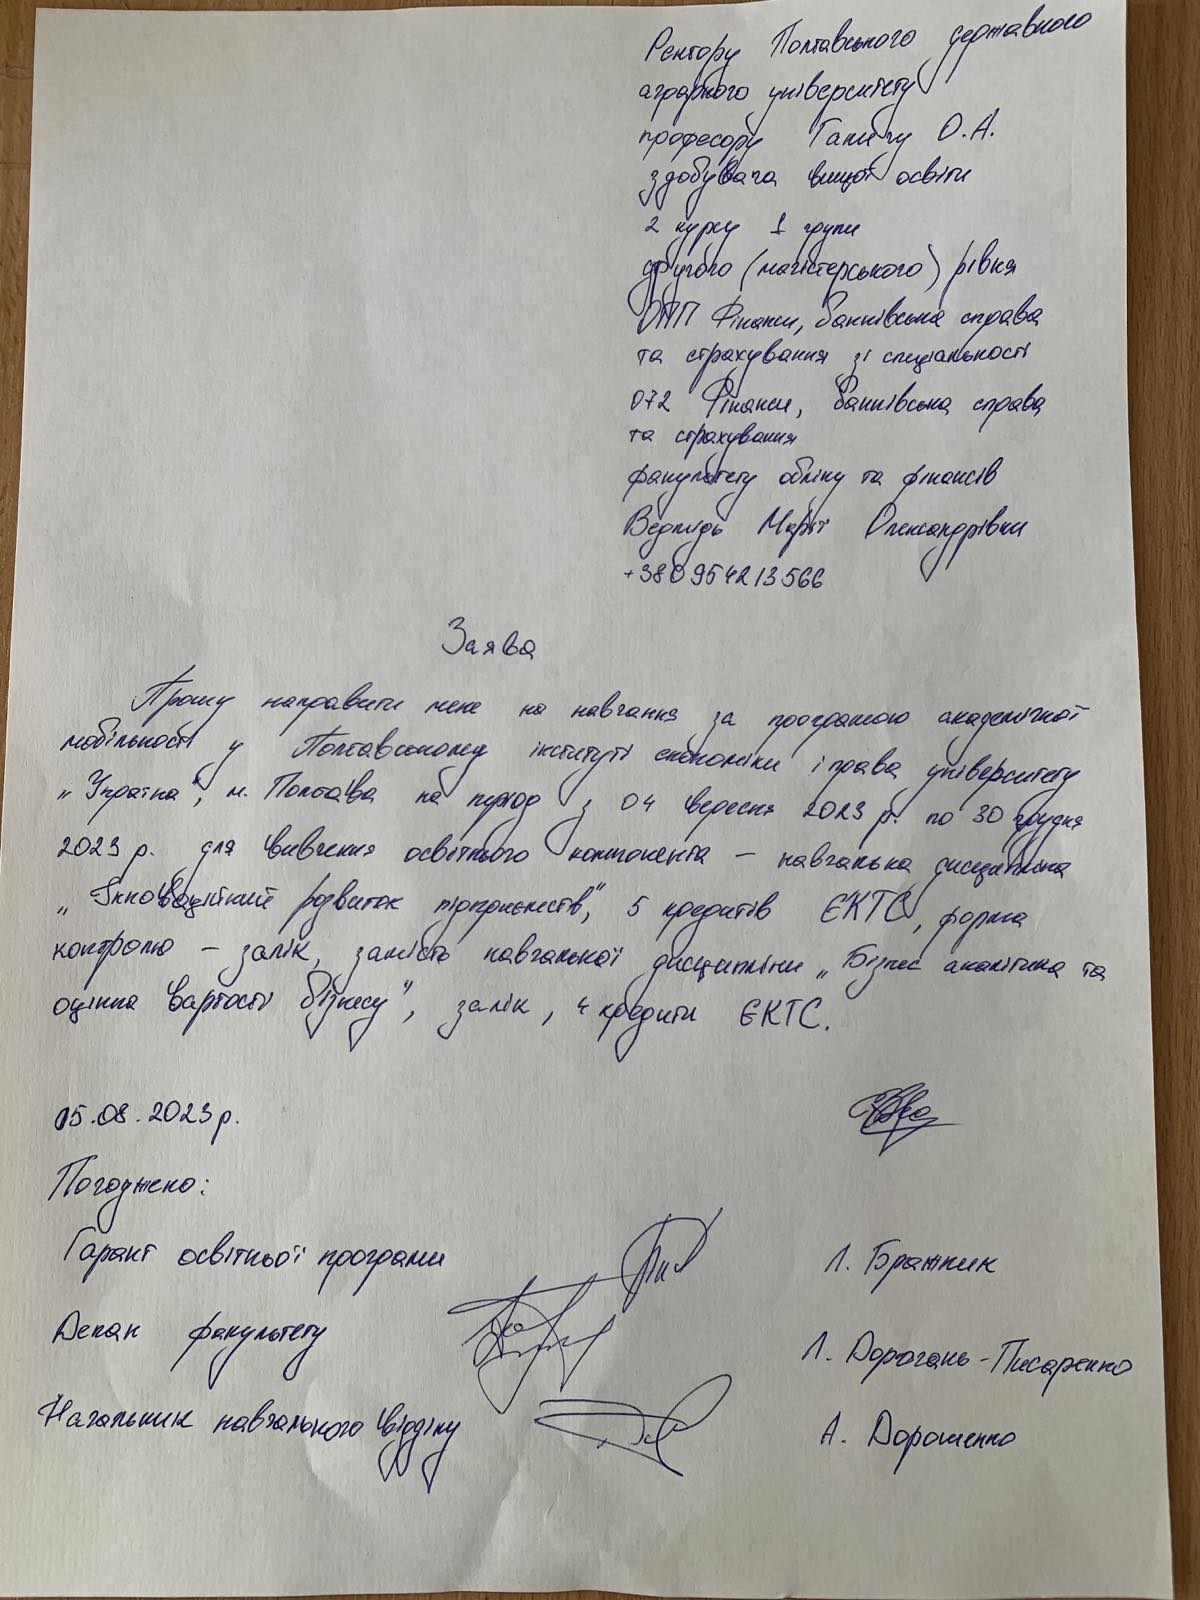 Ректору Полтавського державного
аграрного університету
професору Галичу О.А.
здобувача вищої освіти
2 курсу 1 групи
другого (магістерського) рівня
ОПП Фінанси, банківська справа
та страхування зі спеціальності
072 Фінанси, банківська справа
та страхування
факультету обліку та фінансів
Ведмідь Марії Олександрівни
+380954213566
Заява
Прошу направити мене на навчання за програмою академічної
мобільності у Полтавському інституті економіки і права університету
„Україна", м. Полтава на період з 04 вересня 2023 р. по 30 грудня
2023 р. для вивчення освітнього компонента – навчальна дисципліна
„Інноваційний розвиток підприємств", 5 кредитів ЄКТС, форма
контролю – залік, замість навчальної дисципліни „Бізнес аналітика та
оцінка вартості бізнесу", залік, 4 кредити ЄКТС.
15.08.2023 р.
Погоджено:
Гарант освітньої програми Л. Бражник
Декан факультету Л. Дорогань-Писаренко
Начальник навчального відділу А. Дорошенко